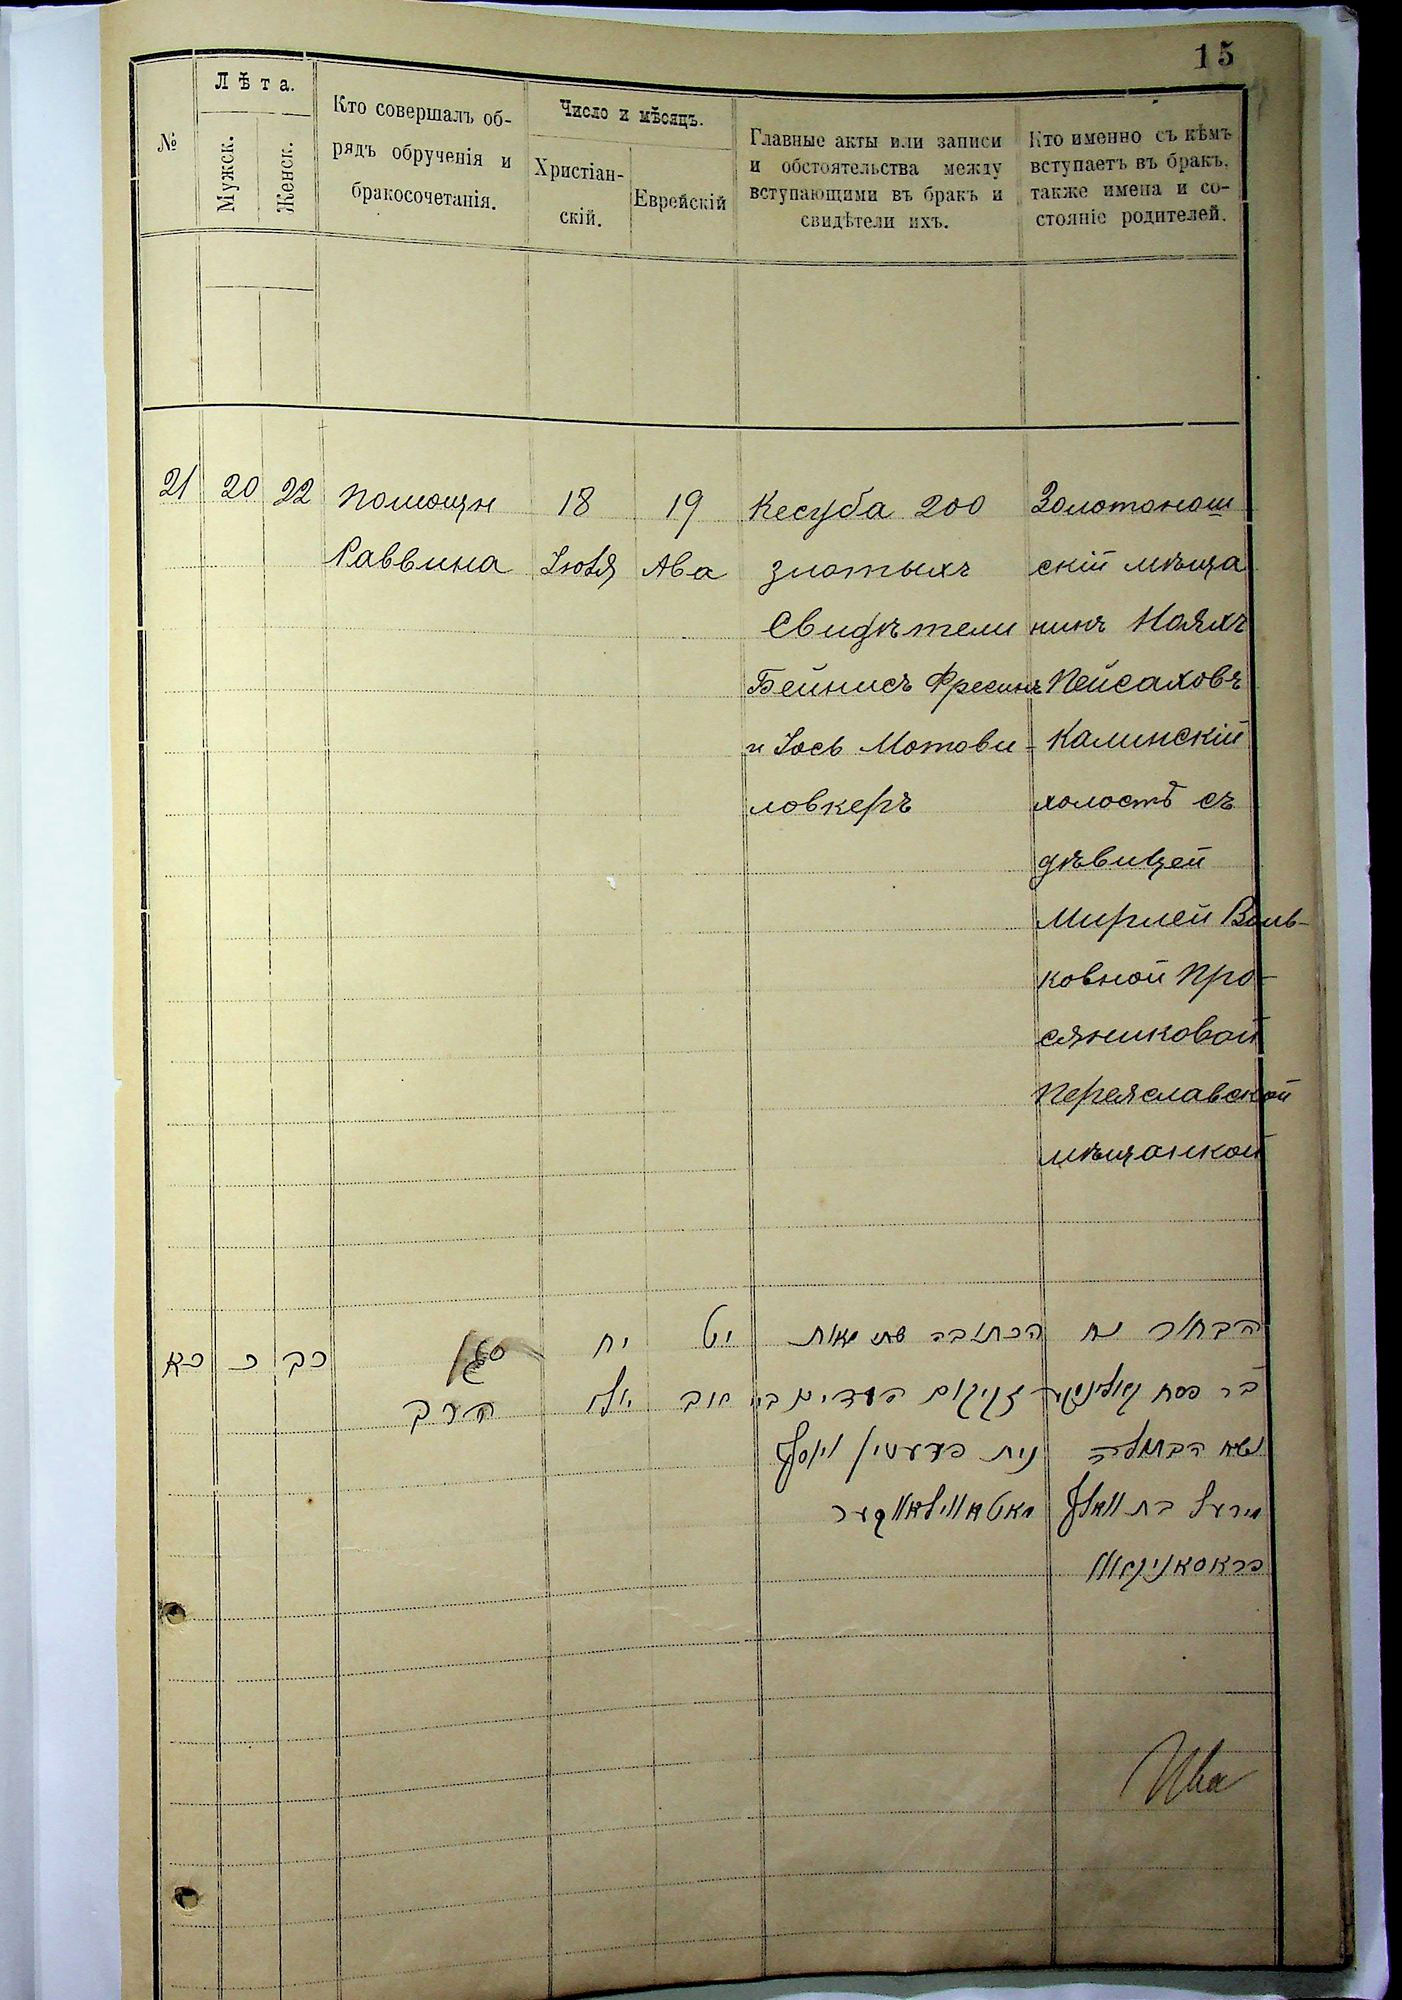 15
№
Лѣта.
Мужск.
Женск.
Кто совершалъ об-
рядъ обрученія и
бракосочетанія.
Число и мѣсяцъ.
Христіан-
скій.
Еврейскій
Главные акты или записи
и обстоятельства между
вступающими въ бракъ и
свидѣтели ихъ.
Кто именно съ кѣмъ
вступаетъ въ бракъ,
также имена и со-
стояніе родителей.
21
20
22
Помощн
Раввина
18
Іюля
19
Ава
Кесуба 200
злотыхъ
Свидѣтели
Бейнисъ Фресинъ
и Іось Мотови-
ловкеръ
Золотонош
скій мѣща
нинъ Нояхъ
Пейсаховъ
Калинскій
холостъ съ
дѣвицей
Мирлей Воль-
ковной Про-
сяниковой
Переяславской
мѣщанкой
כא
כ
כב
סגן
הרב
יח
יולי
יט
הכתובה שתי מאות
זקוקים העדים
הבחור נח
בר פסח
נשא הבתולה
מירעל בת וואלף